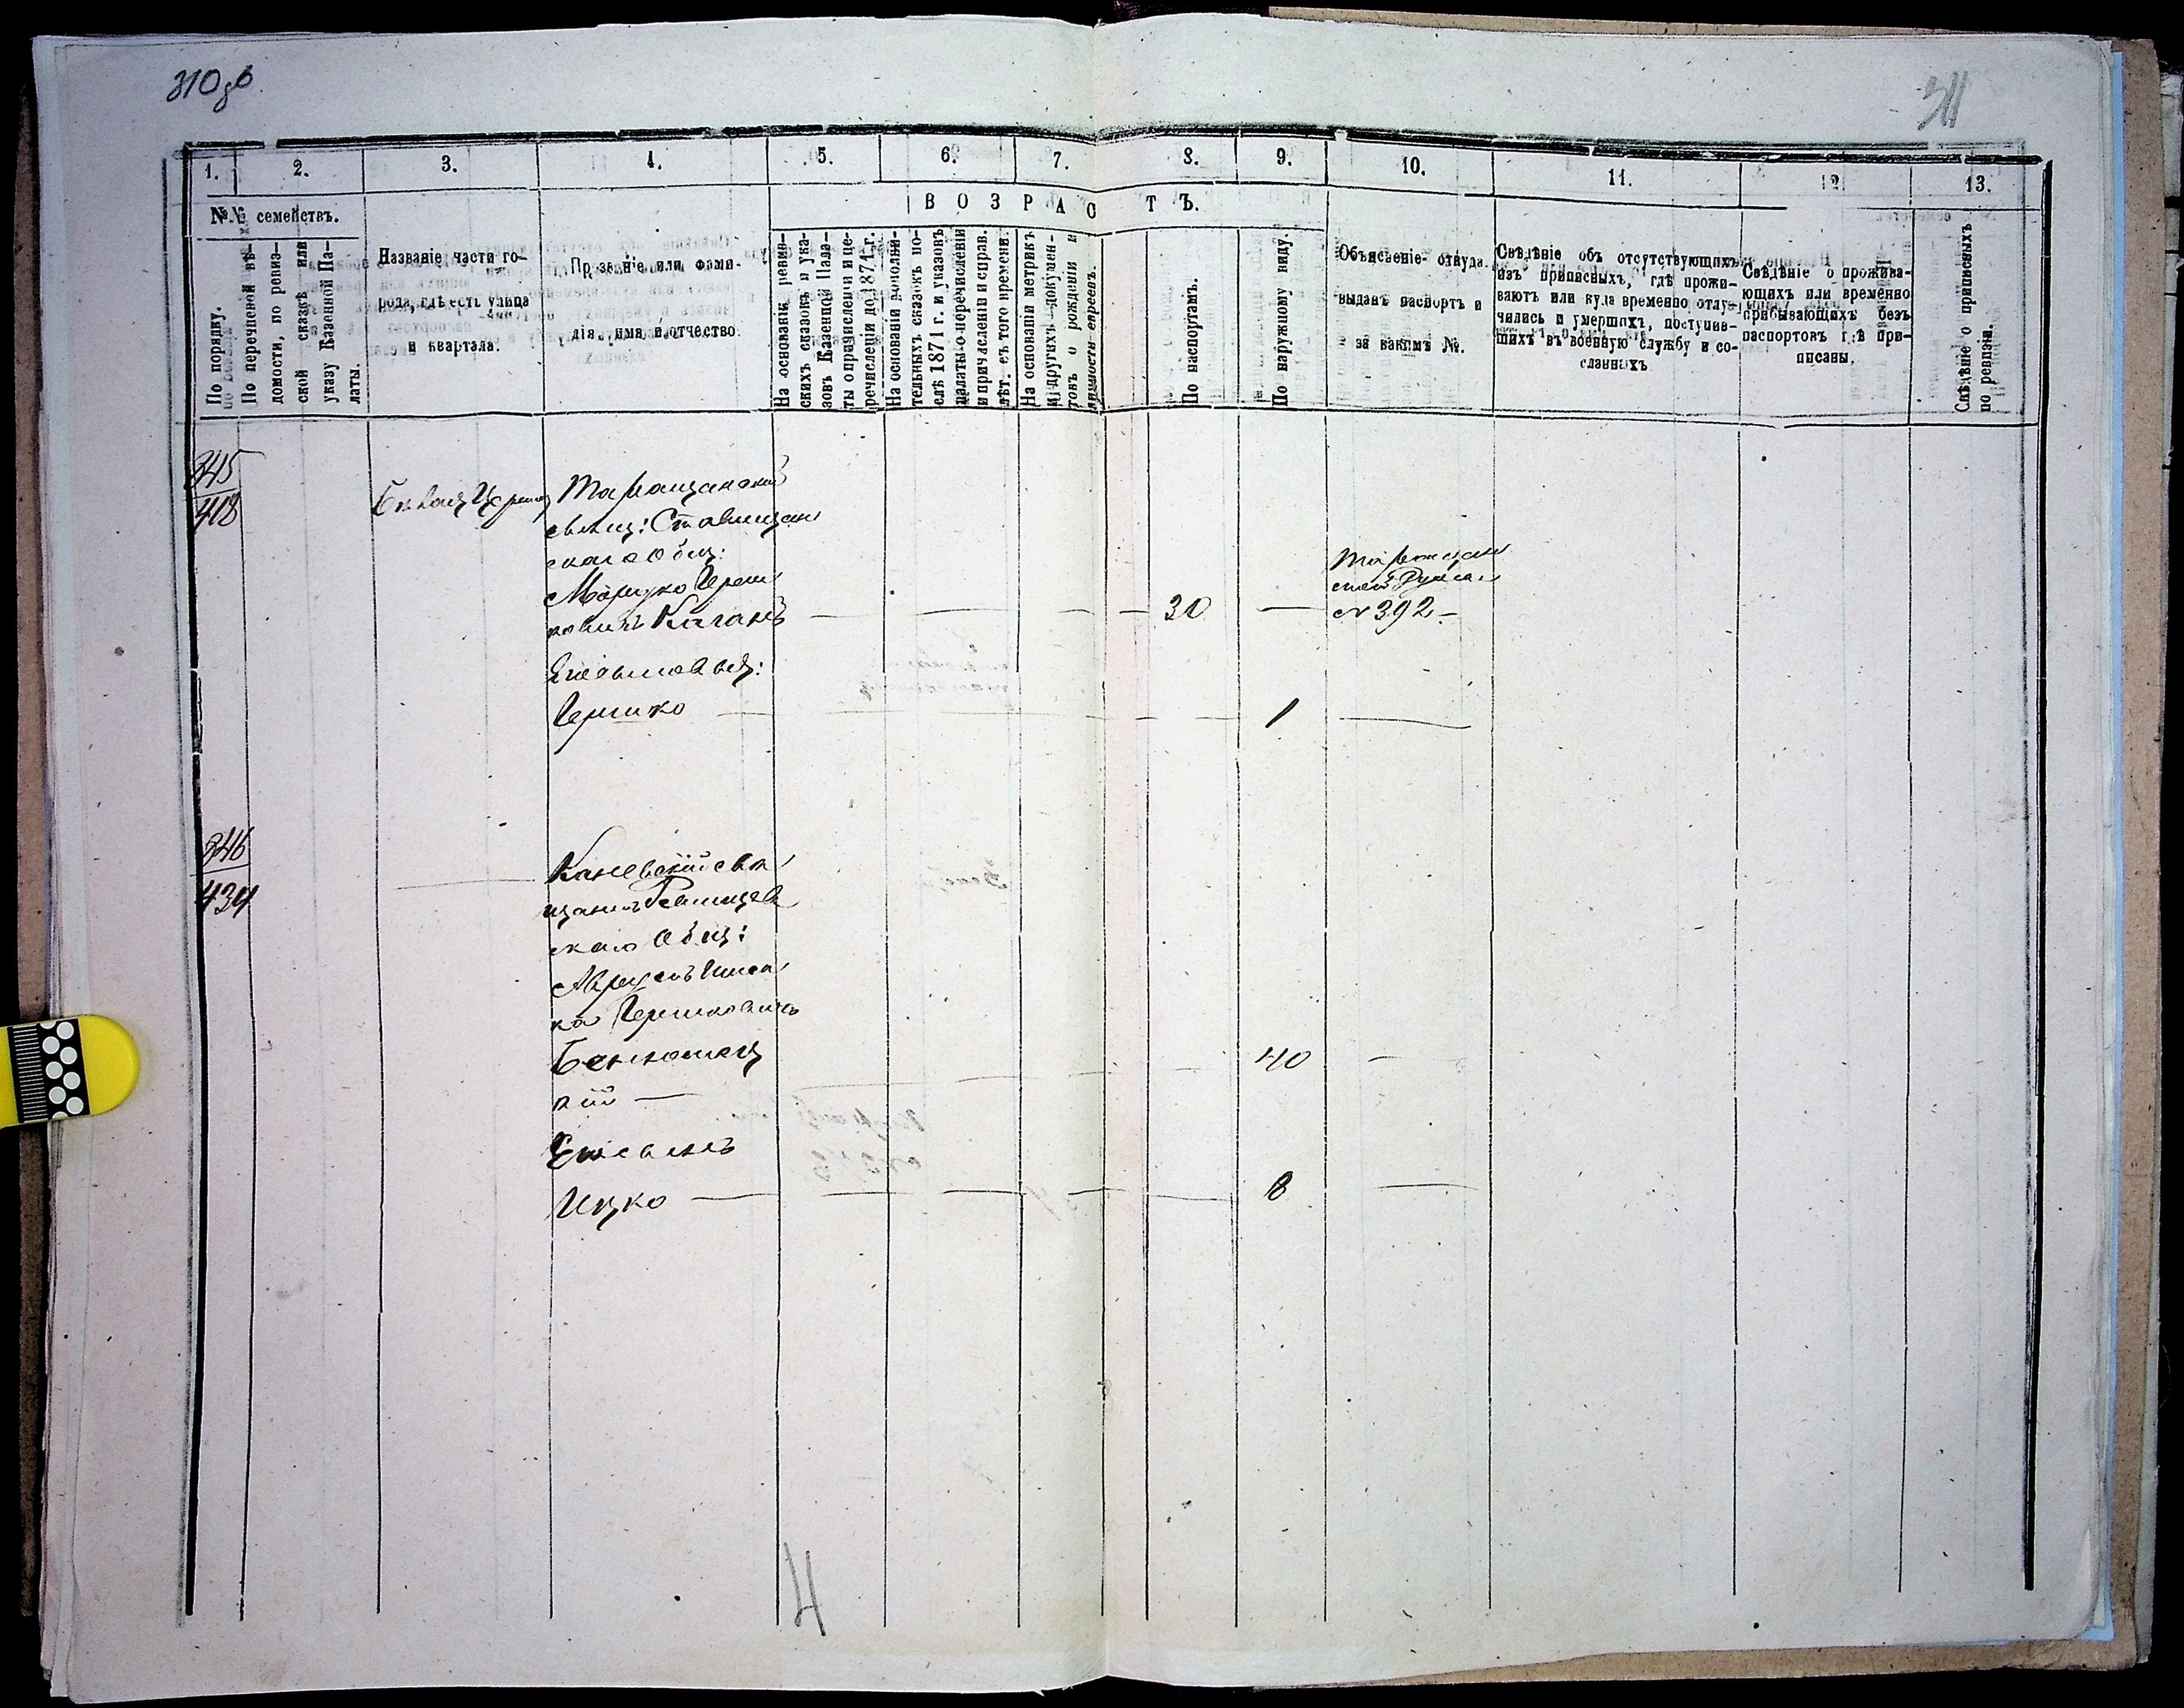 310 об
311
1.
2.
3.
4.
5.
6.
7.
8.
9.
10.
11.
12.
13.
№№ семействъ.
ВОЗРАСТЪ.
По порядку.
По перечневой вѣ-
домости, по ревиз-
ской сказкѣ или
указу Казенной Па-
латы.
Названіе части го-
рода, гдѣ есть улица
и квартала.
Прозваніе или фами-
лія, имя и отчество.
На основаніи ревиз-
скихъ сказокъ и ука-
зовъ Казенной Пала-
ты о причисленіи и пе-
речисленіи до 1871 г.
На основаніи дополни-
тельныхъ сказокъ по-
слѣ 1871 г. и указовъ
палаты о перечисленіи
и причисленіи и справ.
лѣт. съ того времени.
На основаніи метрикъ
и другихъ докумен-
товъ о рожденіи и
личности евреевъ.
По паспортамъ.
По наружному виду.
Объясненіе откуда
выданъ паспортъ и
за какимъ №.
Свѣдѣніе объ отсутствующихъ
изъ приписныхъ, гдѣ прожи-
ваютъ или куда временно отлу-
чились и умершихъ, поступив-
шихъ въ военную службу и со-
сланныхъ
Свѣдѣніе о прожива-
ющихъ или временно
прибывающихъ безъ
паспортовъ гдѣ при-
писаны.
Свѣдѣніе о приписныхъ
по ревизіи.
345
418
Таращанскій
мѣщ: Ставищан
скаго Общ:
Мошко Герш
ковичъ Каганъ — 30 —
Таращан
ской Думы
№ 392 —
Его сынов
Гершко — 1 —
346
434
Каневскій мѣ
щанинъ
скаго Общ:
Аврумъ
ка Гершковичъ
40 —
кій —
Его сынъ
Ицко — 8 —
4